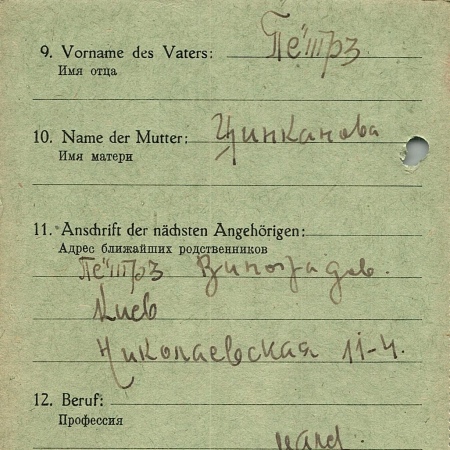 9. Vorname des Vaters: Пётръ
Имя отца
10. Name der Mutter: Цинканова
Имя матери
11. Anschrift der nächsten Angehörigen:
Адрес ближайших родственников
Пётръ Виноградов.
Киев
Николаевская 11-4.
12. Beruf:
Профессия